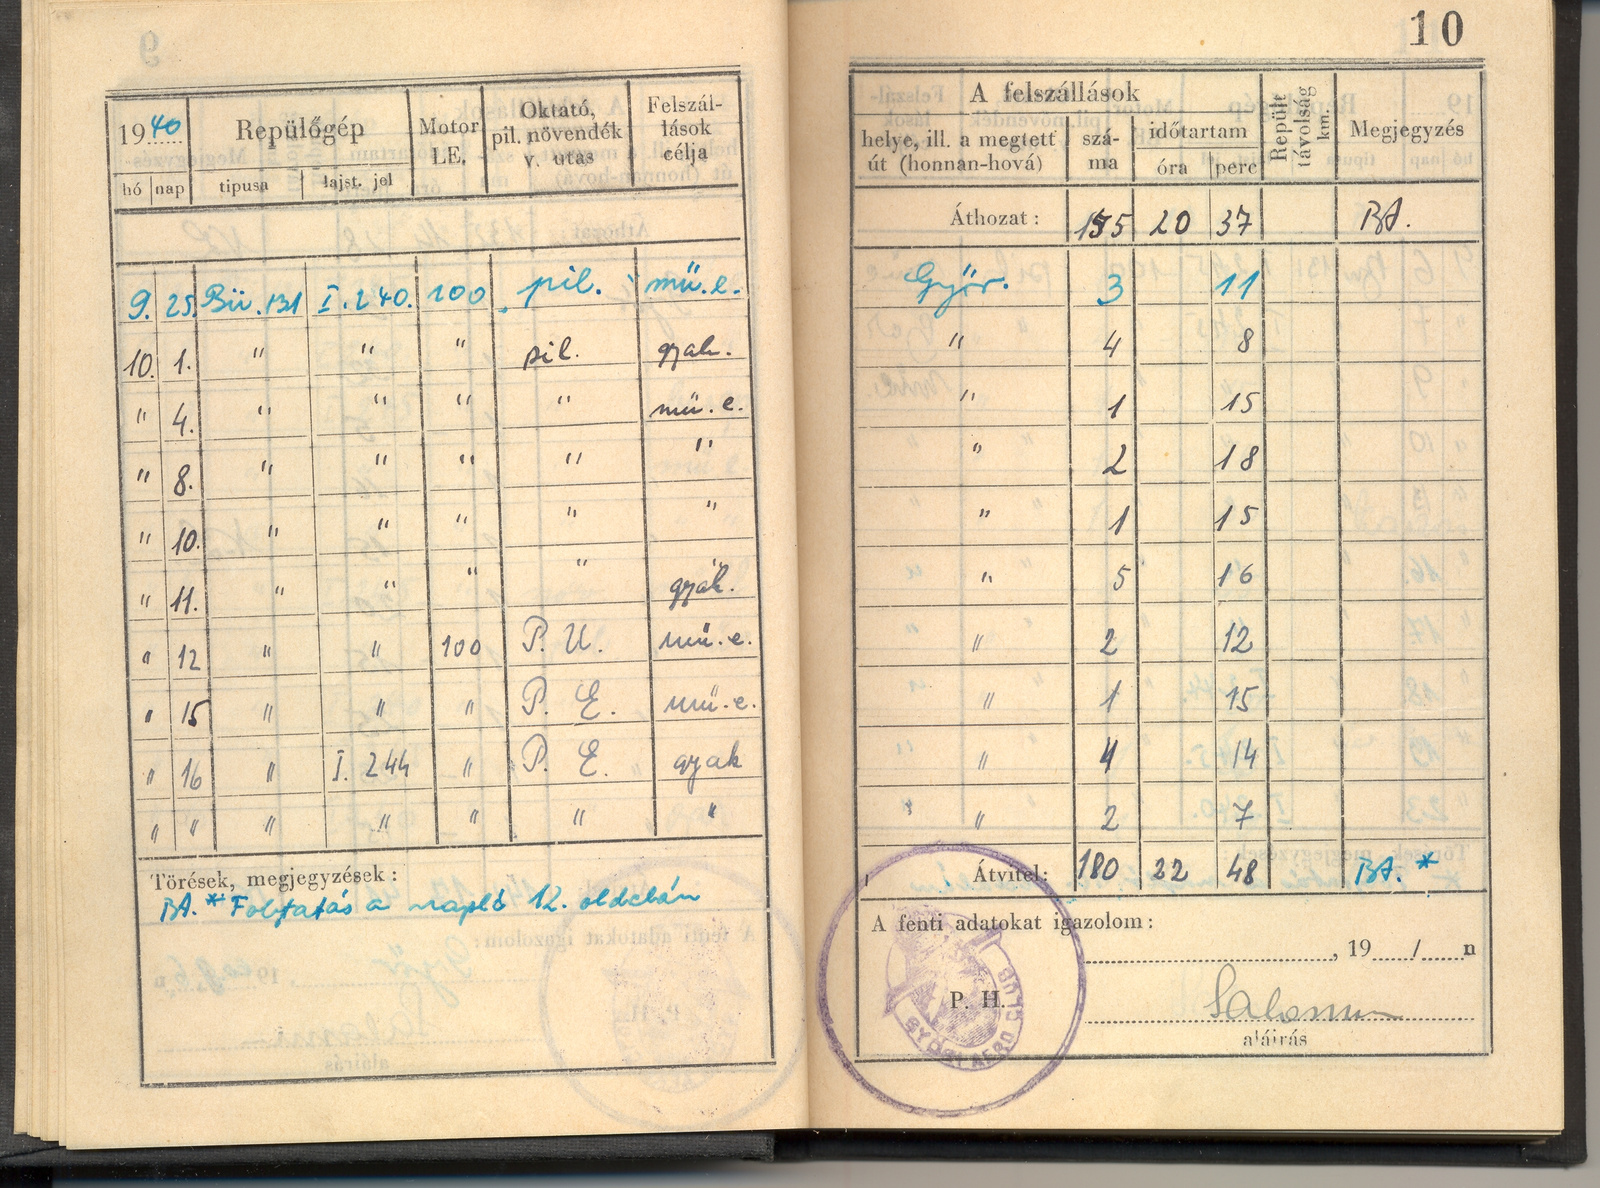 10
1940
Repülőgép
Motor
LE.
Oktató,
pil. növendék
v. utas
Felszál-
lások
célja
hó nap tipusa lajst. jel
9. 25. Bü.131 I.240. 100 pil. mű.e.
10. 1. " " " pil. gyak.
" 4. " " " " mű.e.
" 8. " " " " "
" 10. " " " " "
" 11. " " " " gyak.
" 12 " " 100 P. U. mű.e.
" 15 " " " P. E. mű.e.
" 16 " I.244 " P. E. gyak
" " " " " " "
Törések, megjegyzések:
BA.* Folytatás a napló 12. oldalán
A felszállások
helye, ill. a megtett
út (honnan-hová)
szá-
ma
időtartam
óra perc
Repült
távolság
km.
Megjegyzés
Áthozat: 155 20 37 BA.
Győr. 3 11
" 4 8
" 1 15
" 2 18
" 1 15
" 5 16
" 2 12
" 1 15
" 4 14
" 2 7
Átvitel: 180 22 48 BA. *
A fenti adatokat igazolom:
, 19 / n
P. H.
aláírás
GYŐRI AERO CLUB